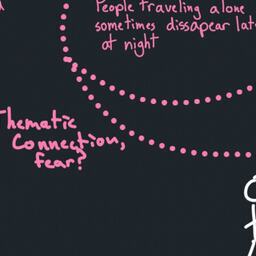 People traveling alone
sometimes dissapear lat
at night
Thematic
Connection,
fear?